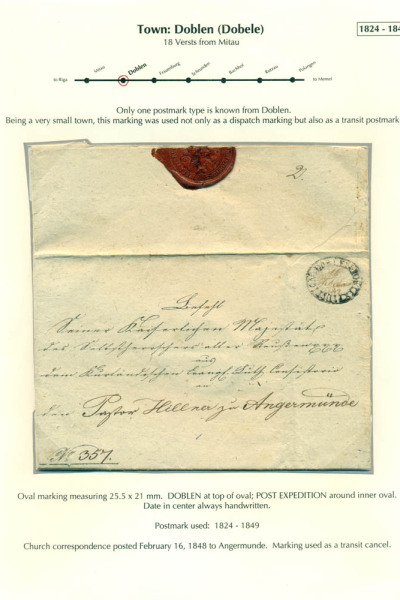 Town: Doblen (Dobele)
1824 - 184
18 Versts from Mitau
to Riga
Mitau
Doblen
Frauenburg
Schrunden
Bachhof
Rutzau
Polangen
to Memel
Only one postmark type is known from Doblen.
Being a very small town, this marking was used not only as a dispatch marking but also as a transit postmark
2.
Befehl
Seiner Kaiserlichen Majestät
des Selbstherrschers aller Reußen
aus
dem Kurländischen Evangl. Luth. Consistorio
an
den Pastor Hillner zu Angermünde
No 357.
Oval marking measuring 25.5 x 21 mm. DOBLEN at top of oval; POST EXPEDITION around inner oval.
Date in center always handwritten.
Postmark used: 1824 - 1849
Church correspondence posted February 16, 1848 to Angermunde. Marking used as a transit cancel.